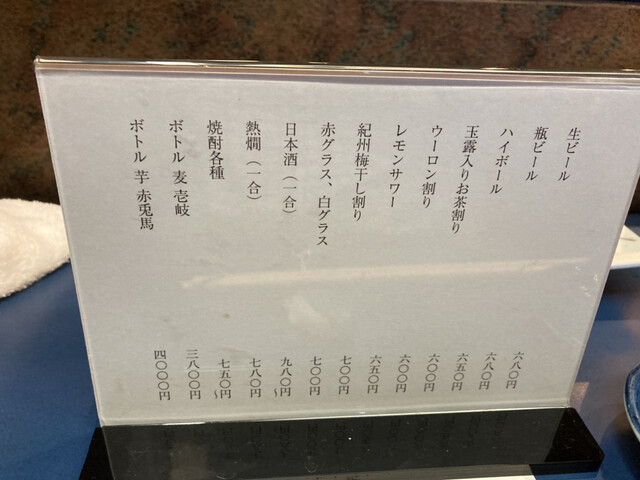 生ビール 六八〇円
瓶ビール 六八〇円
ハイボール 六五〇円
玉露入りお茶割り 六〇〇円
ウーロン割り 六〇〇円
レモンサワー 六五〇円
紀州梅干し割り 七〇〇円
赤グラス、白グラス 七〇〇円
日本酒（一合） 九八〇円〜
熱燗（一合） 七八〇円
焼酎各種 七五〇円〜
ボトル 麦 壱岐 三八〇〇円
ボトル 芋 赤兎馬 四〇〇〇円